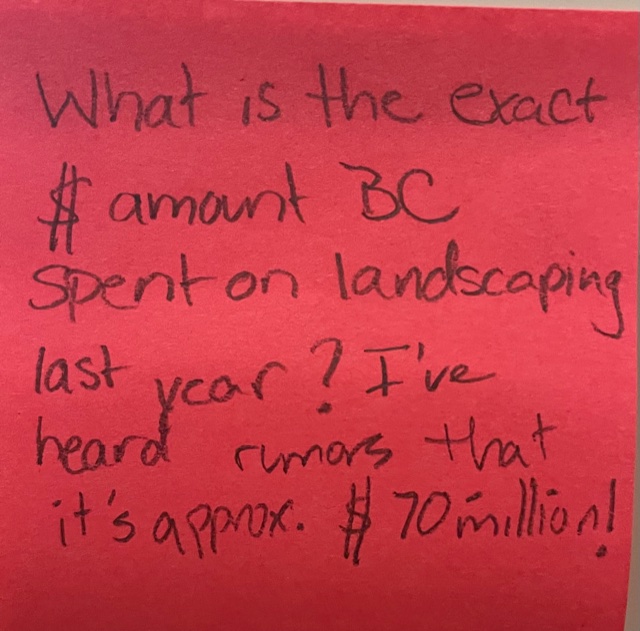 What is the exact
$ amount BC
spent on landscaping
last year? I've
heard rumors that
it's approx. $70 million!